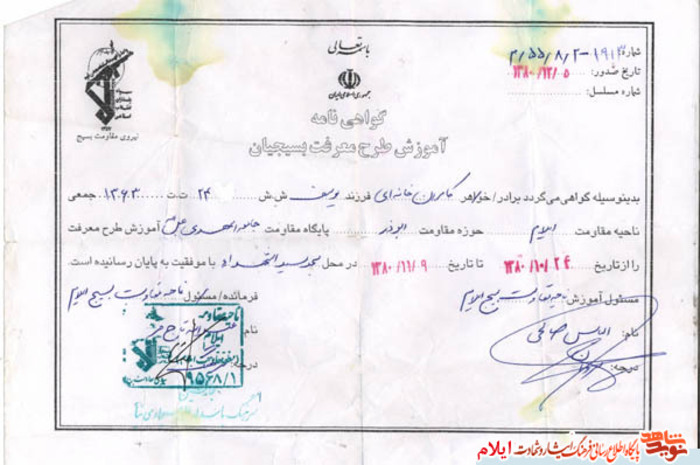 باسمه تعالی
شماره: ۱۹۱۳-۲/۸/۵۵/م
تاریخ صدور: ۱۳۸۰/۱۲/۰۵
شماره مسلسل:
جمهوری اسلامی ایران
نیروی مقاومت بسیج
گواهی نامه
آموزش طرح معرفت بسیجیان
بدینوسیله گواهی می‌گردد برادر/خواهر کامران خانه‌ای فرزند یوسف ش.ش ۲۴ ت.ت ۱۳۶۳ جمعی
ناحیه مقاومت ایلام حوزه مقاومت ابوذر پایگاه مقاومت آموزش طرح معرفت
را از تاریخ ۱۳۸۰/۱۰/۲۴ تا تاریخ ۱۳۸۰/۱۱/۰۹ در محل مسجد سیدالشهداء با موفقیت به پایان رسانیده است.
مسئول آموزش ناحیه مقاومت بسیج ایلام
فرمانده/مسئول ناحیه مقاومت بسیج ایلام
نام: الماس صالحی
نام:
درجه:
درجه:
ناحیه مقاومت
ایلام
۹۵۶۸/۱
نوید شاهد
پایگاه اطلاع رسانی فرهنگ ایثار و شهادت ایلام